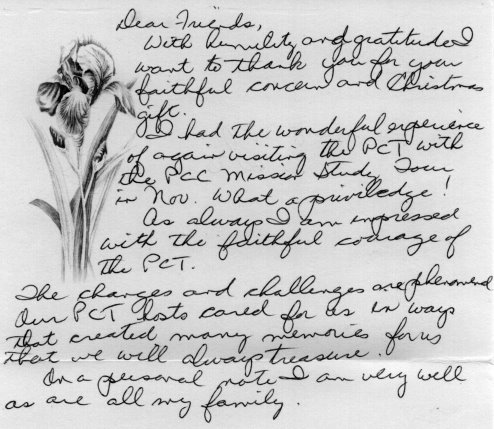 Dear Friends,
With humility and gratitude I
want to thank you for your
faithful concern and Christmas
gift.
I had the wonderful experience
of again visiting the PCT with
the PCC Mission Study Tour
in Nov. What a priviledge!
As always I am impressed
with the faithful courage of
the PCT.
The changes and challenges are phenomenal
Our PCT hosts cared for us in ways
that created many memories for us
that we will always treasure.
On a personal note I am very well
as are all my family.